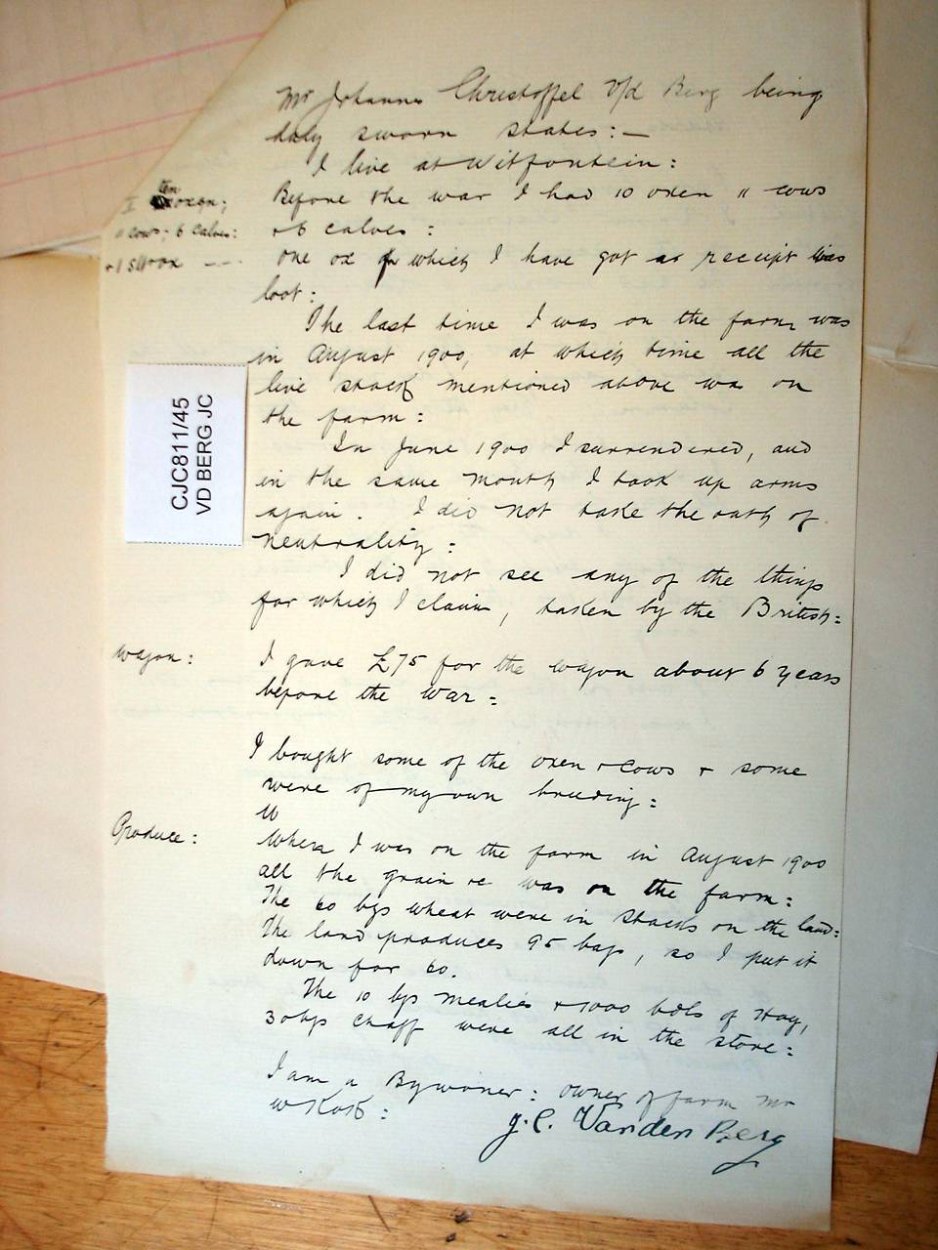 Mr Johannes Christoffel V/d Berg being
duly sworn states:—
I live at Witfontein:
ten
oxen;
Before the war I had 10 oxen 11 cows
11 cows; 6 calves:
+ 6 calves:
+ 1 sl: ox
one ox for which I have got a receipt was
loot:
The last time I was on the farm was
in August 1900, at which time all the
live stock mentioned above was on
the farm:
In June 1900 I surrendered, and
in the same month I took up arms
again. I did not take the oath of
neutrality:
I did not see any of the things
for which I claim, taken by the British:
CJC811/45
VD BERG JC
Wagon:
I gave £75 for the wagon about 6 years
before the war:
I bought some of the oxen + cows + some
were of my own breeding:
Produce:
When I was on the farm in August 1900
all the grain was on the farm:
The 60 bgs wheat were in stacks on the land:
The land produces 95 bags, so I put it
down for 60.
The 10 bgs mealies + 1000 bdls of Hay,
30 bgs chaff were all in the store:
I am a Bywoner: owner of farm Mr
W Kok:
J. C. Van den Berg